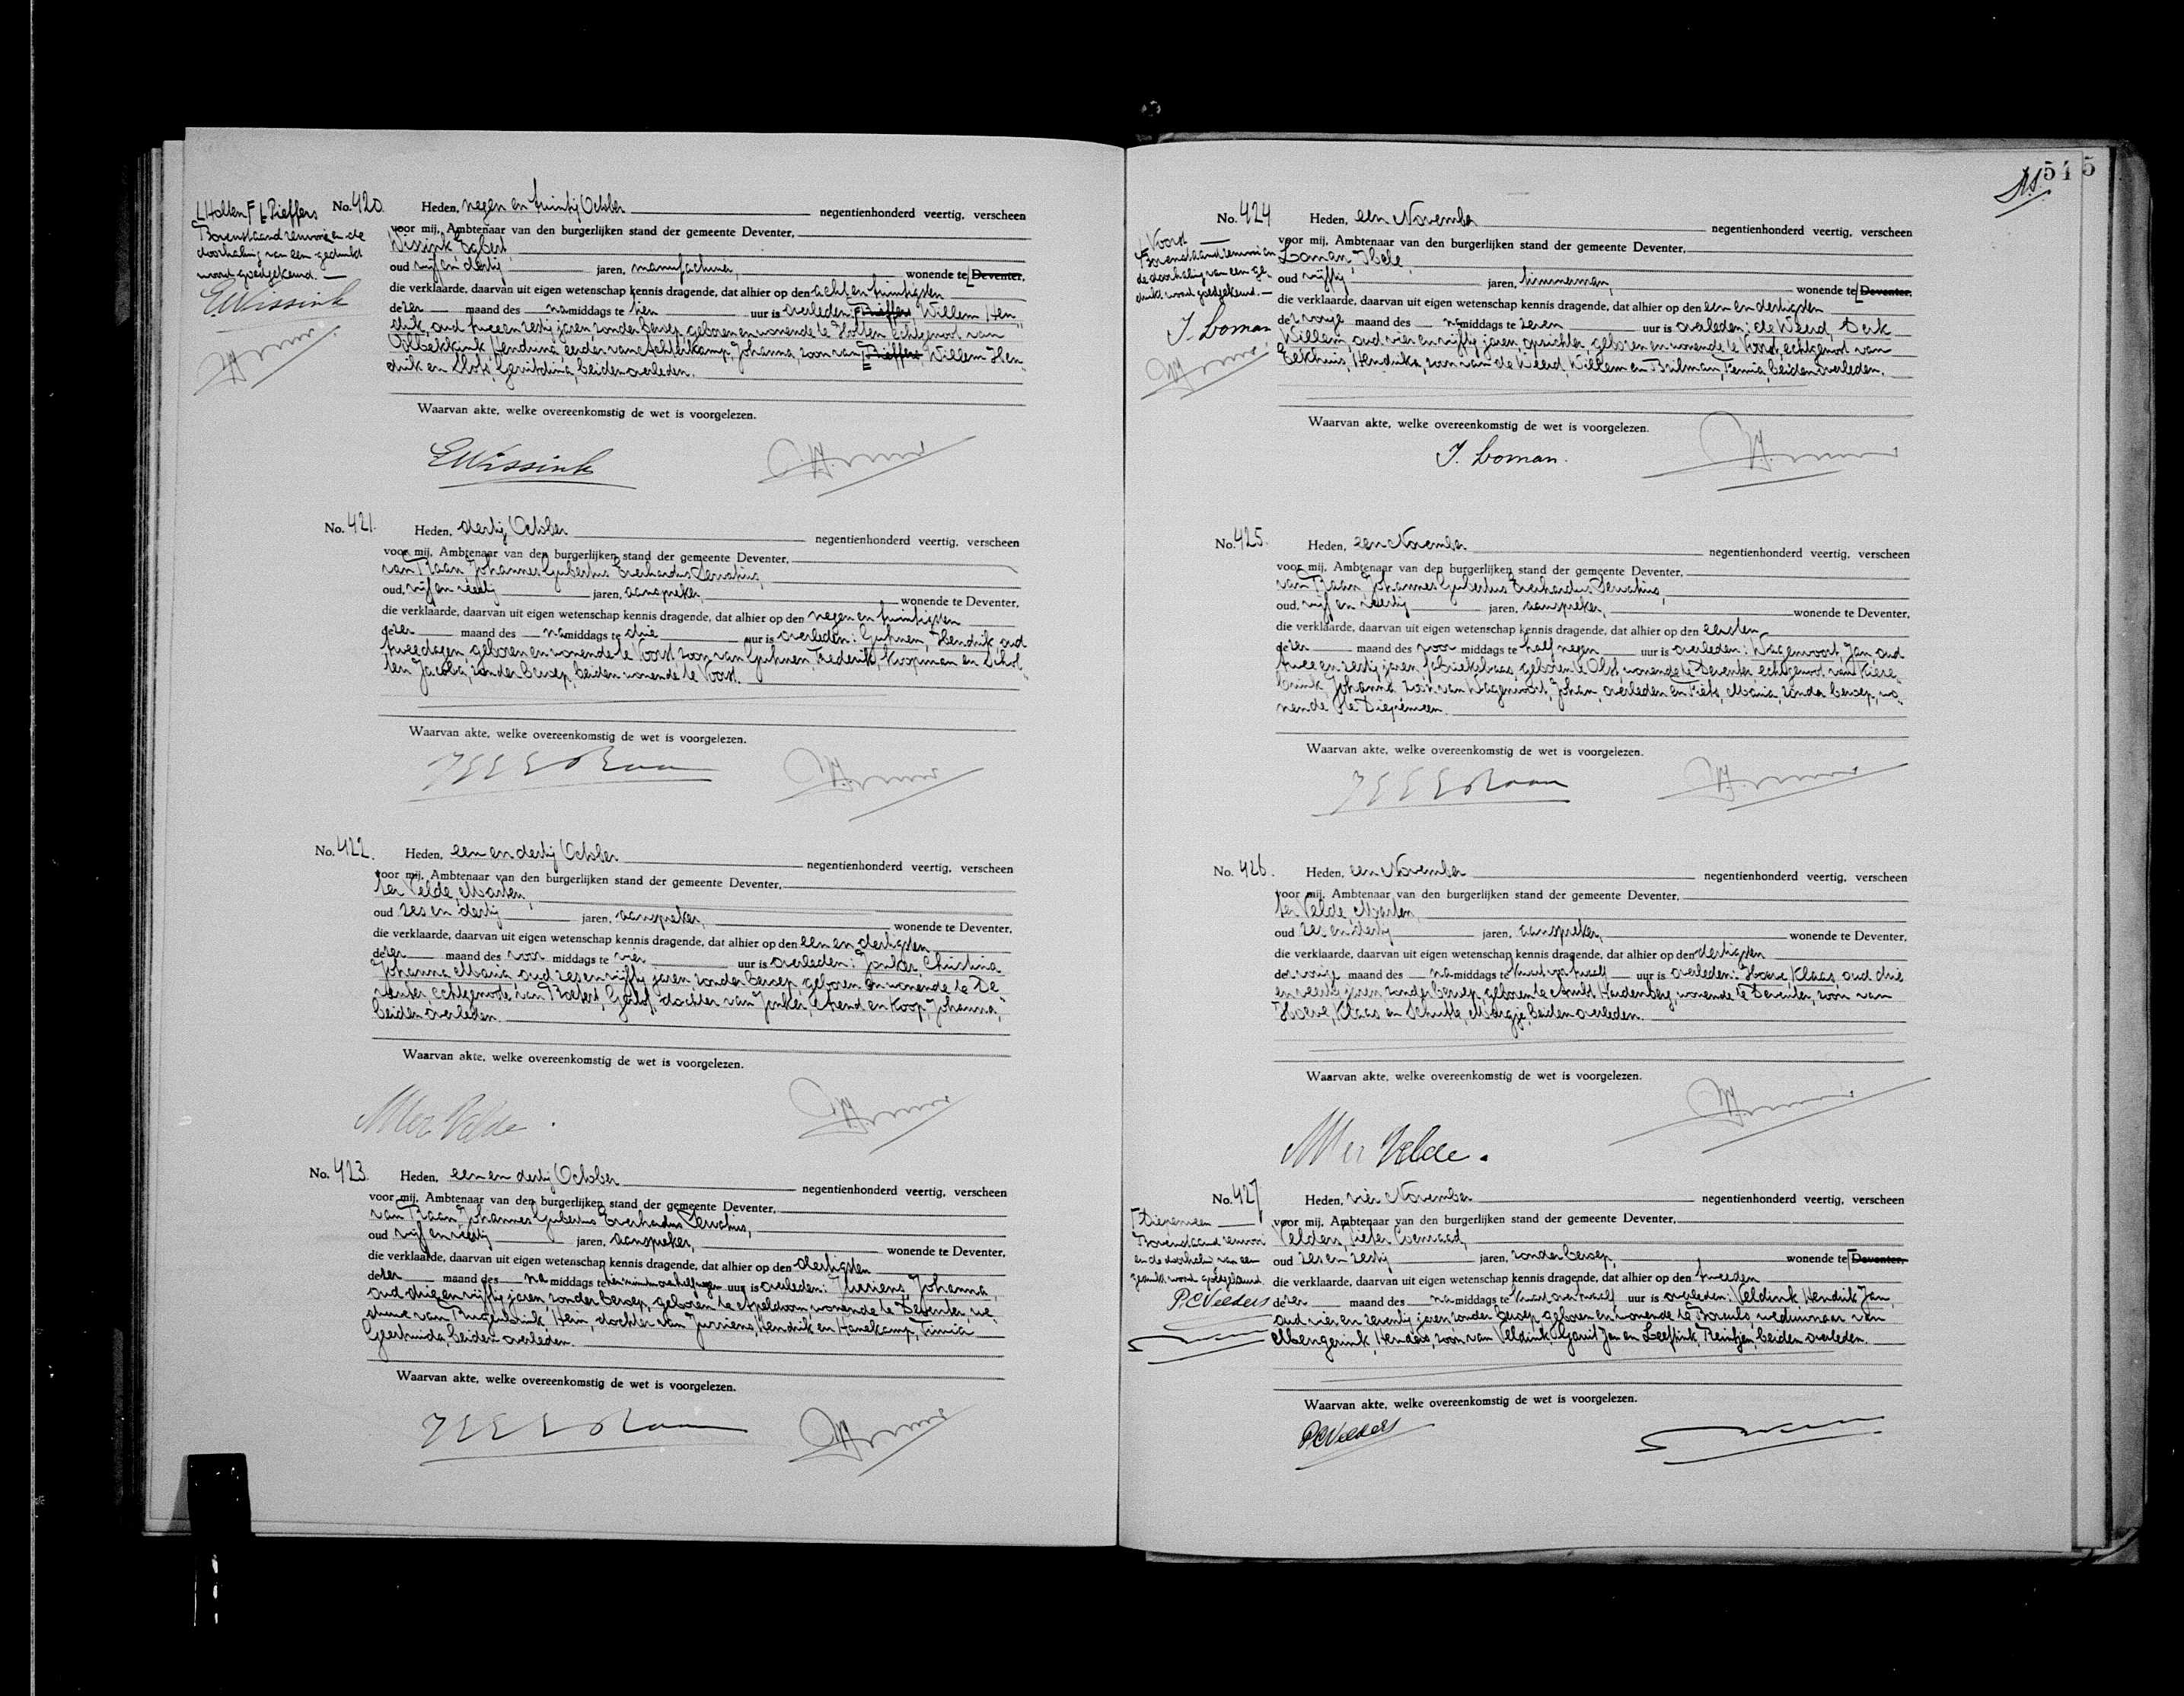 No. 420.
Holten Pieffers
Bovenstaand renvooi en de
doorhaling van een gedrukt
woord goedgekeurd.
EWissink
Heden, negen en twintig October negentienhonderd veertig, verscheen
voor mij, Ambtenaar van den burgerlijken stand der gemeente Deventer,
Wissink, Egbert,
oud vijf en dertig jaren, manufacturier, wonende te Deventer,
die verklaarde, daarvan uit eigen wetenschap kennis dragende, dat alhier op den acht en twintigsten
dezer maand des namiddags te tien uur is overleden: Pieffers Willem Hen-
drik, oud twee en zestig jaren, zonder beroep, geboren en wonende te Holten, echtgenoot van
Hendrina, eerder van Achterkamp, Johanna, zoon van Pieffers Willem Hen-
drik en Slots, Gerritdina, beiden overleden.
Waarvan akte, welke overeenkomstig de wet is voorgelezen.
EWissink
No. 421.
Heden, dertig October negentienhonderd veertig, verscheen
voor mij, Ambtenaar van den burgerlijken stand der gemeente Deventer,
van Raan, Johannes Gijsbertus Everhardus Servatius,
oud, vijf en veertig jaren, aanspreker, wonende te Deventer,
die verklaarde, daarvan uit eigen wetenschap kennis dragende, dat alhier op den negen en twintigsten
dezer maand des namiddags te drie uur is overleden: Hendrik, oud
twee dagen, geboren en wonende te Voorst, zoon van Frederik, koopman en Schol-
ten Jacoba, zonder beroep, beiden wonende te Voorst.
Waarvan akte, welke overeenkomstig de wet is voorgelezen.
No. 422.
Heden, een en dertig October negentienhonderd veertig, verscheen
voor mij, Ambtenaar van den burgerlijken stand der gemeente Deventer,
ter Velde, Marten,
oud zes en dertig jaren, aanspreker, wonende te Deventer,
die verklaarde, daarvan uit eigen wetenschap kennis dragende, dat alhier op den een en dertigsten
dezer maand des voormiddags te vier uur is overleden: Jonker, Christina
Johanna Maria, oud zes en vijftig jaren, zonder beroep, geboren en wonende te De-
venter, echtgenoote van Gerrit, dochter van Jonker, Arend en Koop, Johanna,
beiden overleden.
Waarvan akte, welke overeenkomstig de wet is voorgelezen.
M ter Velde.
No. 423.
Heden, een en dertig October negentienhonderd veertig, verscheen
voor mij, Ambtenaar van den burgerlijken stand der gemeente Deventer,
van Raan, Johannes Gijsbertus Everhardus Servatius,
oud vijf en veertig jaren, aanspreker, wonende te Deventer,
die verklaarde, daarvan uit eigen wetenschap kennis dragende, dat alhier op den dertigsten
dezer maand des namiddags te tien minuten over half negen uur is overleden: Jurriens, Johanna,
oud drie en vijftig jaren, zonder beroep, geboren te Apeldoorn, wonende te Deventer, we-
duwe van Hein, dochter van Jurriens, Hendrik en Hanekamp,
Geertruida, beiden overleden.
Waarvan akte, welke overeenkomstig de wet is voorgelezen.
545
No. 424
Voorst
Bovenstaand renvooi en
de doorhaling van een ge-
drukt woord goedgekeurd.
I. Loman
Heden, een November negentienhonderd veertig, verscheen
voor mij, Ambtenaar van den burgerlijken stand der gemeente Deventer,
Loman,
oud vijftig jaren, timmerman, wonende te Deventer,
die verklaarde, daarvan uit eigen wetenschap kennis dragende, dat alhier op den een en dertigsten
der vorige maand des namiddags te zeven uur is overleden: de Weerd, Derk
Willem, oud vier en vijftig jaren, opzichter, geboren en wonende te Voorst, echtgenoot van
Eekhuis, Hendrika, zoon van de Weerd, Willem en Bulman, Femia, beiden overleden.
Waarvan akte, welke overeenkomstig de wet is voorgelezen.
I. Loman.
No. 425.
Heden, een November negentienhonderd veertig, verscheen
voor mij, Ambtenaar van den burgerlijken stand der gemeente Deventer,
van Raan, Johannes Gijsbertus Everhardus Servatius,
oud, vijf en veertig jaren, aanspreker, wonende te Deventer,
die verklaarde, daarvan uit eigen wetenschap kennis dragende, dat alhier op den eersten
dezer maand des voormiddags te half negen uur is overleden: Wagenvoort, Jan, oud
twee en zestig jaren, fabrieksbaas, geboren te Olst, wonende te Deventer, echtgenoot van
Johanna, zoon van Wagenvoort, Johan, overleden en Maria, zonder beroep, wo-
nende te Diepenveen.
Waarvan akte, welke overeenkomstig de wet is voorgelezen.
No. 426.
Heden, een November negentienhonderd veertig, verscheen
voor mij, Ambtenaar van den burgerlijken stand der gemeente Deventer,
ter Velde, Marten,
oud zes en dertig jaren, aanspreker, wonende te Deventer,
die verklaarde, daarvan uit eigen wetenschap kennis dragende, dat alhier op den dertigsten
der vorige maand des namiddags te kwart voor twaalf uur is overleden: Hoeve, Klaas, oud drie
en veertig jaren, zonder beroep, geboren te Ambt Hardenberg, wonende te Deventer, zoon van
Hoeve, Klaas en Schutte, Margje, beiden overleden.
Waarvan akte, welke overeenkomstig de wet is voorgelezen.
M ter Velde.
No. 427
Diepenveen
Bovenstaand renvooi
en de doorhaling van een
gedrukt woord goedgekeurd.
P.C. Velders
Heden, vier November negentienhonderd veertig, verscheen
voor mij, Ambtenaar van den burgerlijken stand der gemeente Deventer,
Velders, Pieter Coenraad,
oud zes en zestig jaren, zonder beroep, wonende te Deventer,
die verklaarde, daarvan uit eigen wetenschap kennis dragende, dat alhier op den tweeden
dezer maand des namiddags te kwart over twaalf uur is overleden: Veldink, Hendrik Jan,
oud vier en zeventig jaren, zonder beroep, geboren en wonende te Borculo, weduwnaar van
Mengerink, Hendera, zoon van Veldink, Garrit Jan en Leeftink, Reintjen, beiden overleden.
Waarvan akte, welke overeenkomstig de wet is voorgelezen.
P.C. Velders